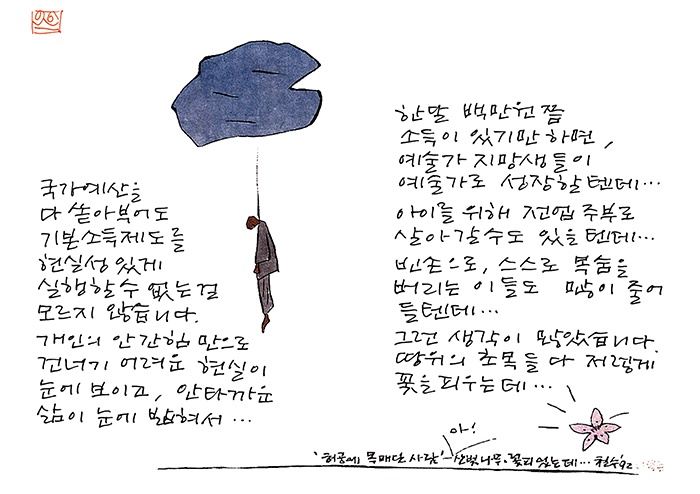 국가예산을
다 쏟아부어도
기본소득제도를
현실성 있게
실행할 수 없는걸
모르지 않습니다.
개인의 안간힘 만으로
건너기 어려운 현실이
눈에 보이고, 안타까운
삶이 눈에 밟혀서 ...
한달 백만원쯤
소득이 있기만 하면,
예술가 지망생들이
예술가로 성장할텐데...
아이를 위해 전업주부로
살아갈수도 있을텐데...
빈손으로, 스스로 목숨을
버리는 이들도 많이 줄어
들텐데...
그런 생각이 많았습니다.
땅위의 초목들 다 저렇게
꽃을 피우는데...
아!
'허공에 목매단 사람' - 산벚나무·꽃피었는데... 철수 '92